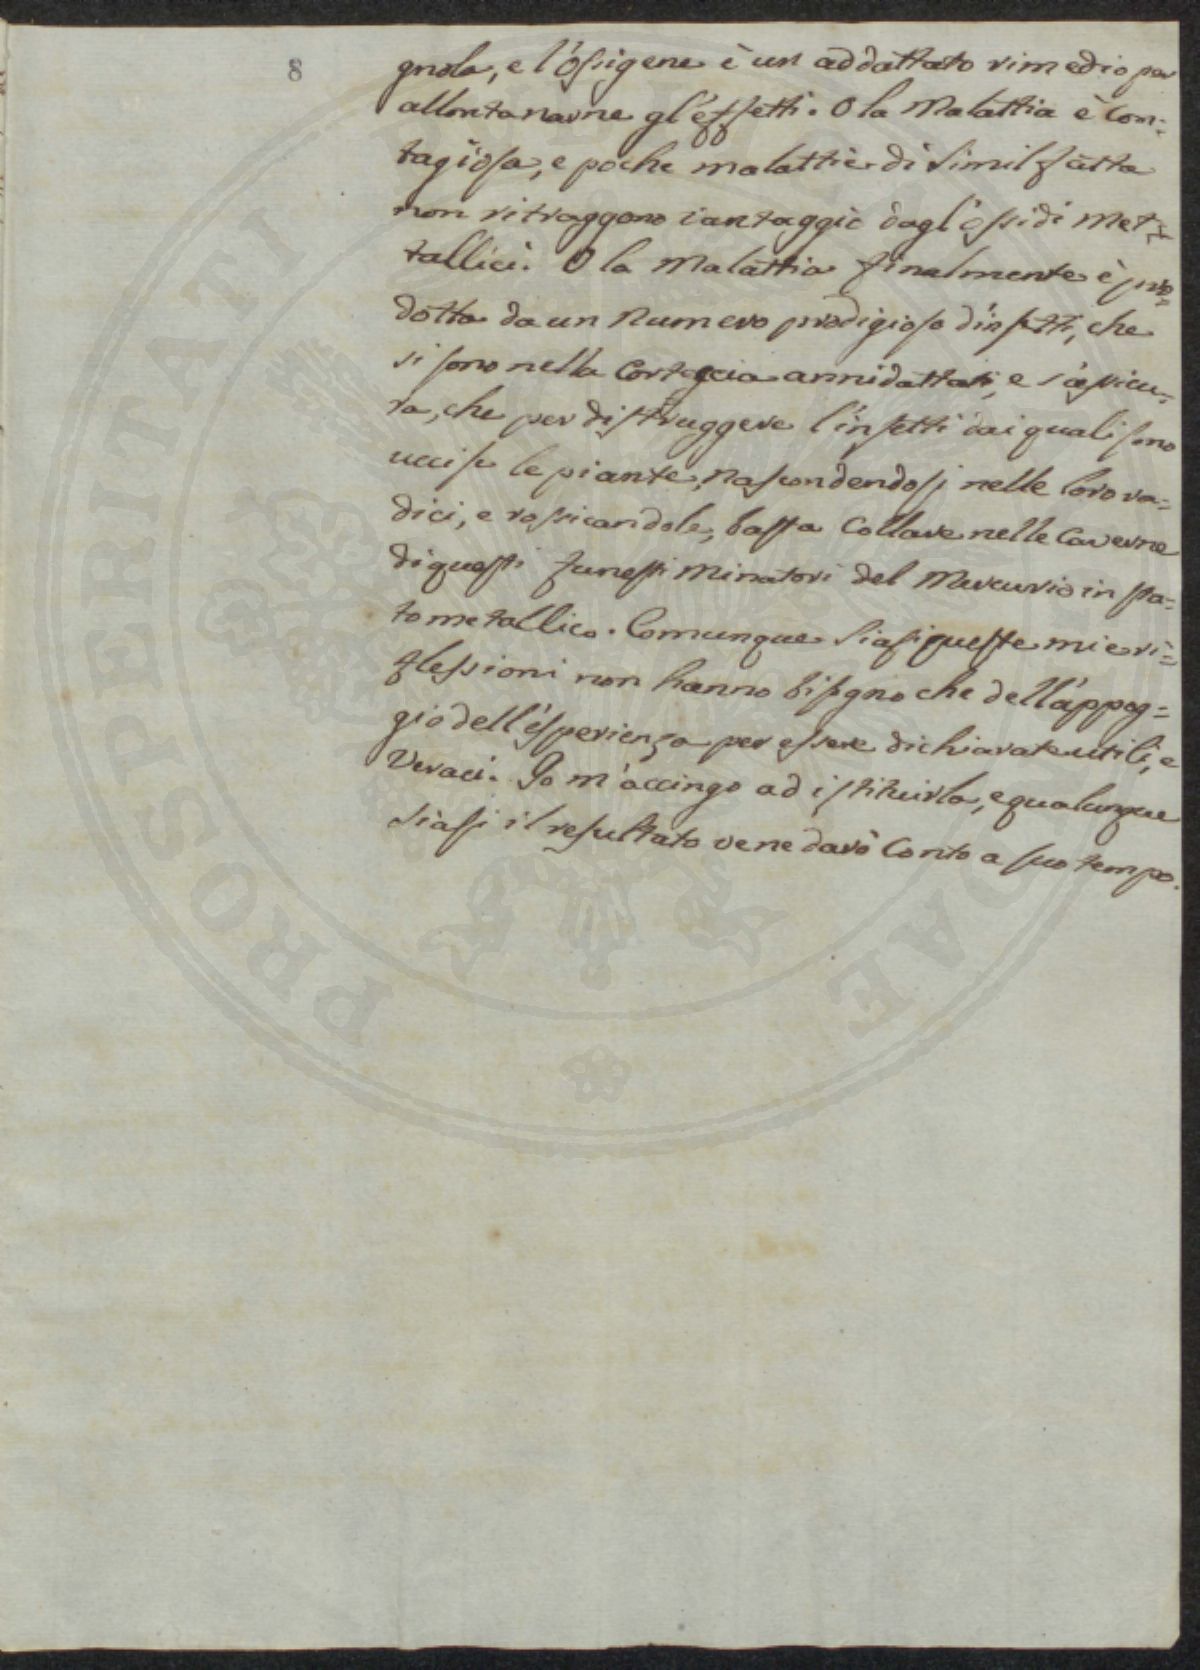 8
gnola, e l'ossigene è un addattato rimedio per
allontanarne gl'effetti. O la Malattia è Con=
tagiosa, e poche malattie di simil fatta
non ritraggono vantaggio dagl'ossidi Met=
tallici. O la Malattia finalmente è pro=
dotta da un Numero prodigioso d'insetti, che
si sono nella Corteccia annidattati, e s'assicu=
ra, che per distruggere l'insetti dai quali sono
uccise le piante, nascondendosi nelle loro ra=
dici, e rossicandole, basta Collare nelle Caverne
di questi funesti Minatori del Mercurio in sta=
to metallico. Comunque siasi queste mie ri=
flessioni non hanno bisogno che dell'appog=
gio dell'esperienza per essere dichiarate utili, e
Veraci. Io m'accingo ad istituirla, e qualunque
siasi il resultato ve ne darò Conto a suo tempo.
PROSPERITATI
AE